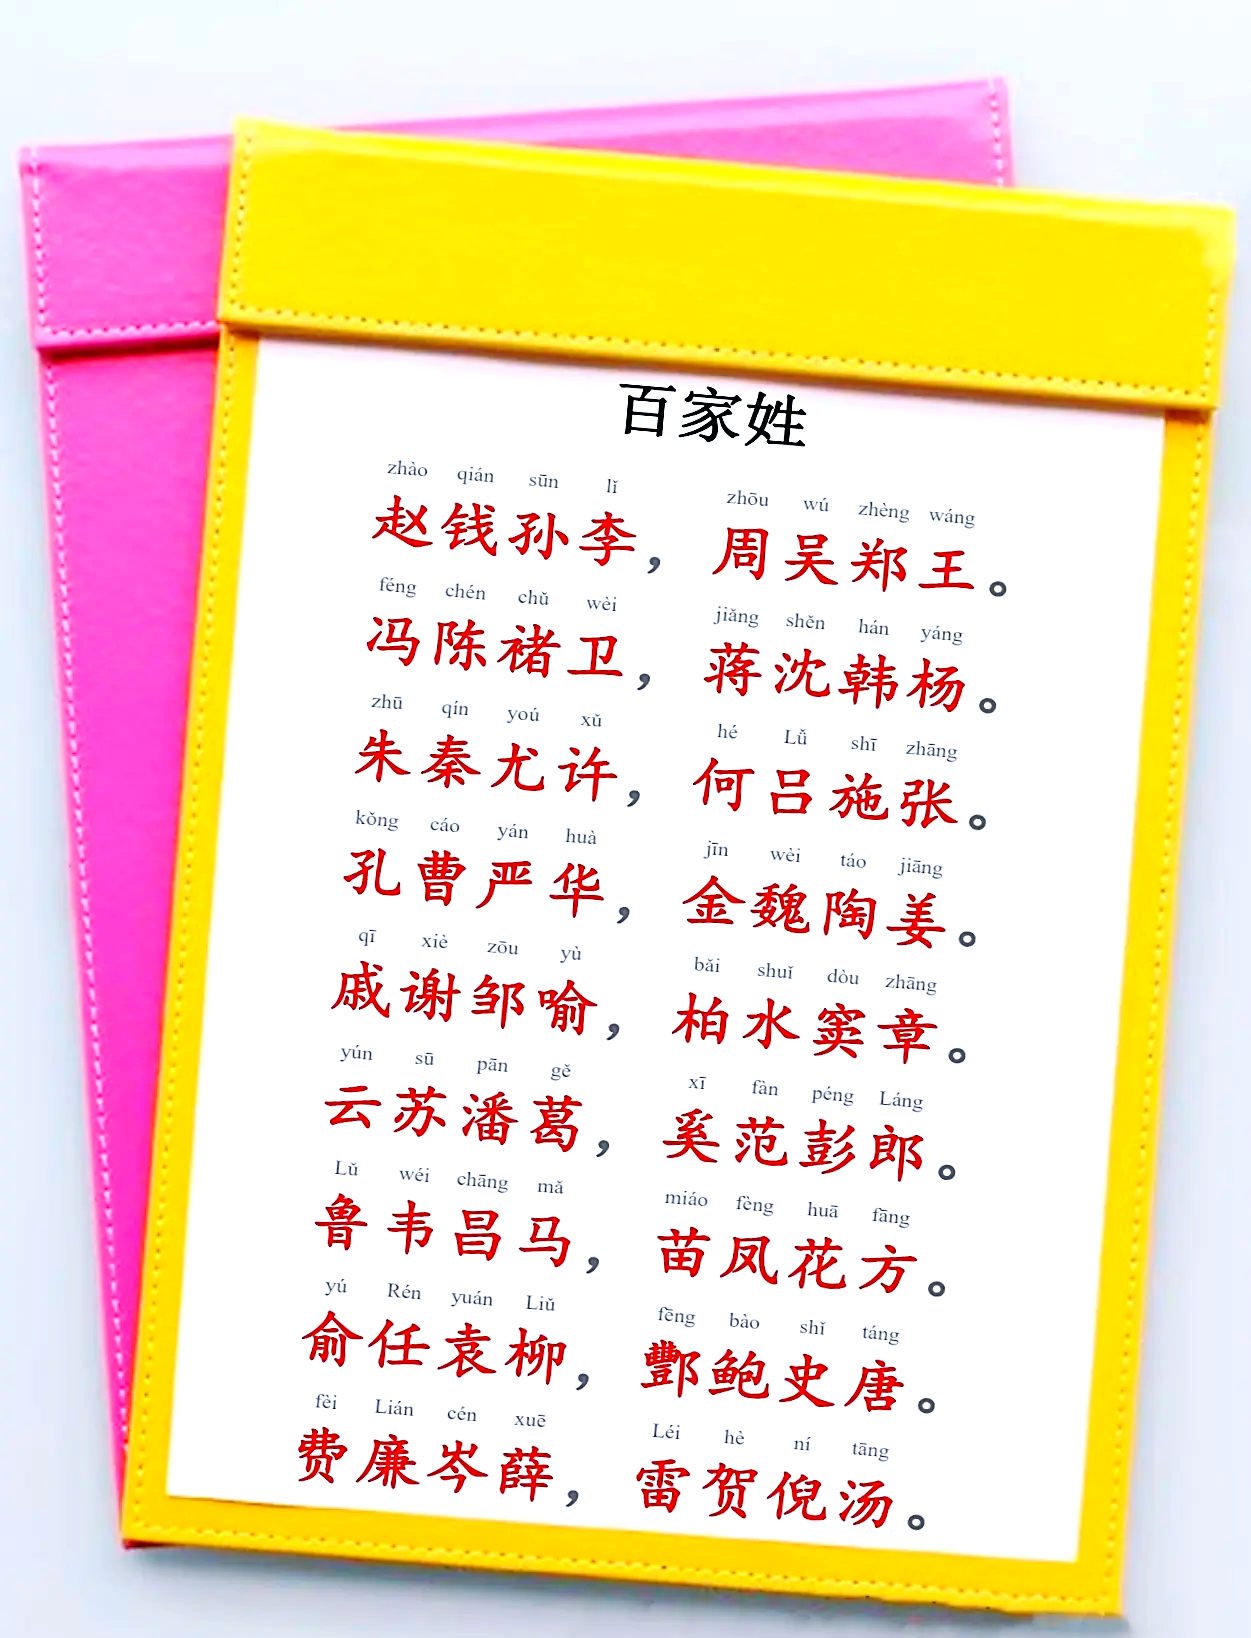 百家姓
zhào qián sūn lǐ zhōu wú zhèng wáng
赵钱孙李，周吴郑王。
féng chén chǔ wèi jiǎng shěn hán yáng
冯陈褚卫，蒋沈韩杨。
zhū qín yoú xǔ hé Lǚ shī zhāng
朱秦尤许，何吕施张。
kǒng cáo yán huà jīn wèi táo jiāng
孔曹严华，金魏陶姜。
qī xiè zōu yù bǎi shuǐ dòu zhāng
戚谢邹喻，柏水窦章。
yún sū pān gě xī fàn péng Láng
云苏潘葛，奚范彭郎。
Lǔ wéi chāng mǎ miáo fèng huā fāng
鲁韦昌马，苗凤花方。
yú Rén yuán Liǔ fēng bào shǐ táng
俞任袁柳，酆鲍史唐。
fèi Lián cén xuē Léi hè ní tāng
费廉岑薛，雷贺倪汤。